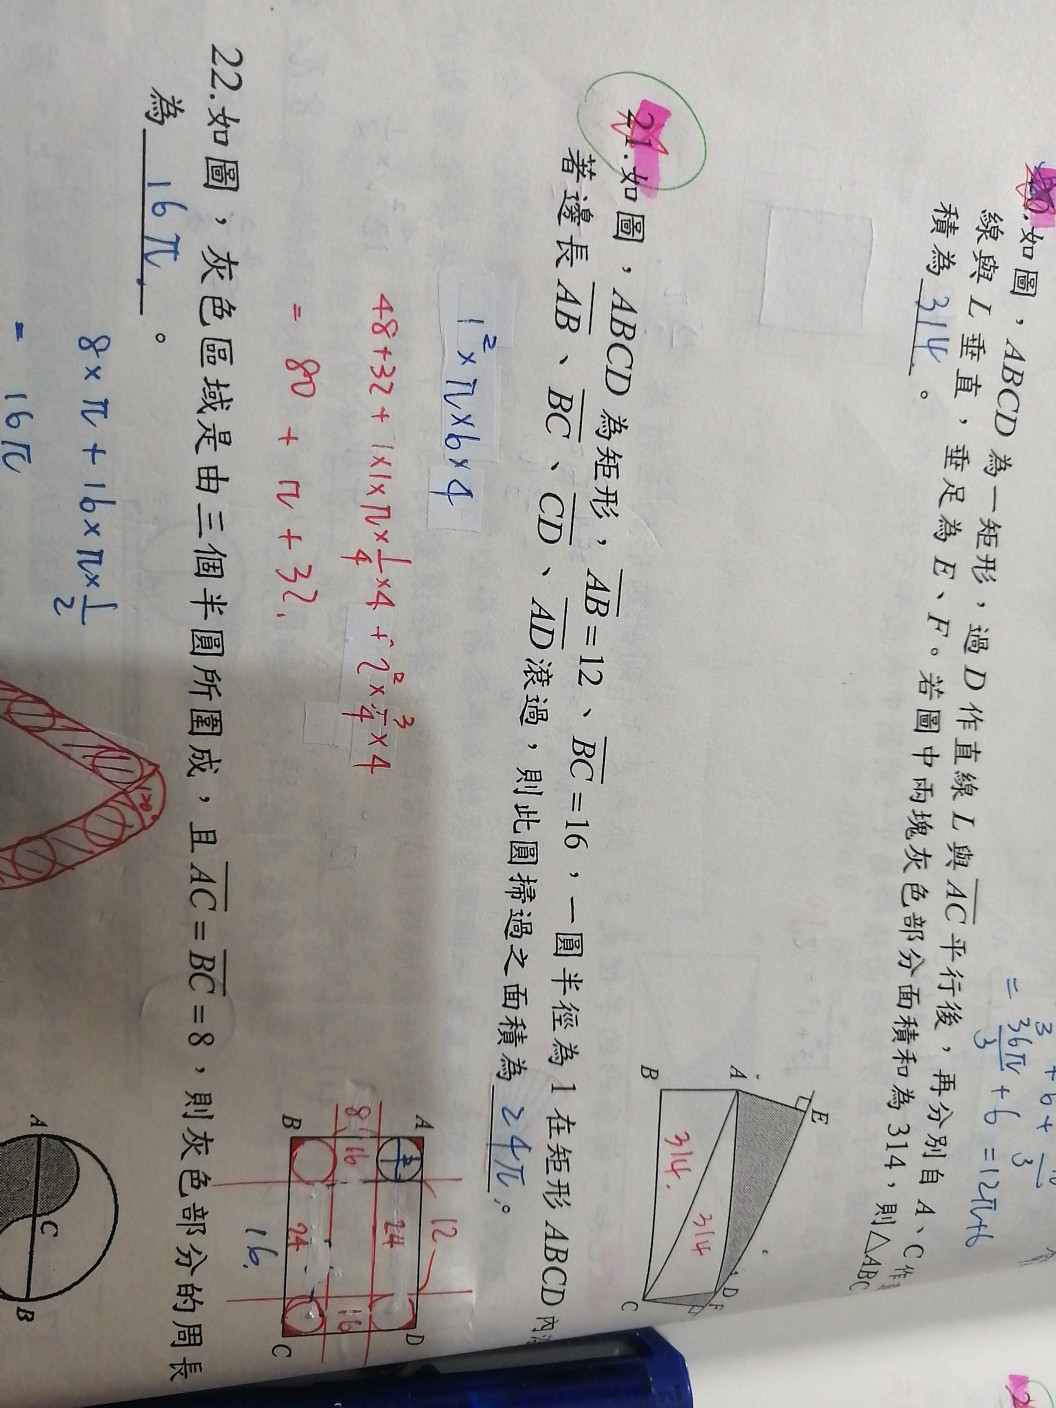 如圖，ABCD 為一矩形，過 D 作直線 L 與 AC 平行後，再分別自 A、C 作
線與 L 垂直，垂足為 E、F。若圖中兩塊灰色部分面積和為 314，則△ABC
積為 314 。
= 36π/3 + 6 = 12π+6
E
A
B
314
314
D
F
C
21.如圖，ABCD 為矩形，AB=12、BC=16，一圓半徑為 1 在矩形 ABCD 內
著邊長 AB、BC、CD、AD 滾過，則此圓掃過之面積為 24π 。
1²×π×6×4
48+32+1×1×π×1/4×4+2²×3/4×4
= 80 + π + 32.
A
12
D
8
16
24
24
16
B
16.
C
22.如圖，灰色區域是由三個半圓所圍成，且 AC=BC=8，則灰色部分的周長
為 16π 。
8×π+16×π×1/2
= 16π
A
C
B